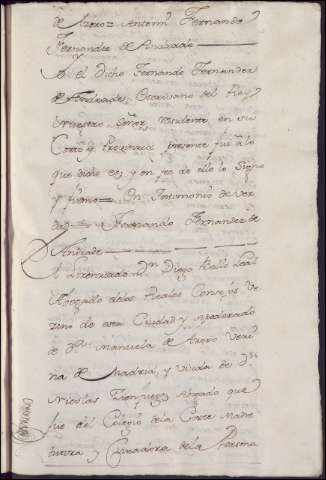 de Azoro = Antonio Fernando
Fernandez de Andrade
Yo el dicho Fernando Fernandez
de Andrade, Escrivano del Rey
Nuestro Señor, residente en su
Corte y Provincia presente fui a lo
que dicho es; y en fe de ello lo signo
y firmo = En testimonio de ver
dad = Fernando Fernandez de
Andrade
El Licenciado Dn Diego Bello Leal
Abogado delos Reales Consejos Ve
zino de esta Ciudad y Apoderado
de Da Manuela de Azoro Vezi
na de Madrid, y Viuda de Dn
Nicolas Abogado que
fue del Colegio de la Corte Madre
tutora y Curadora de la Persona